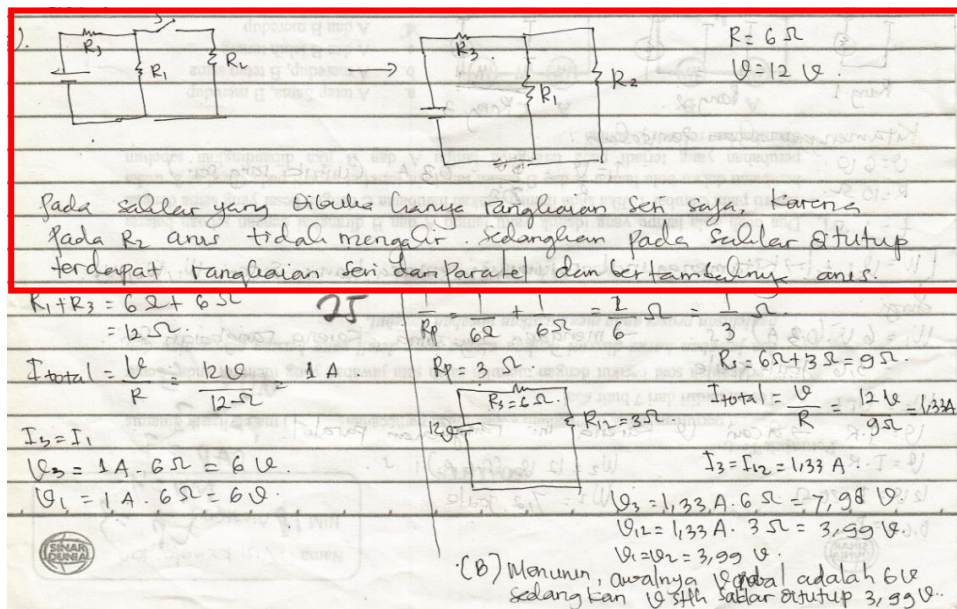 ).
R3 R1 R2
R3 R1 R2
R = 6 Ω
V = 12 V
Pada saklar yg Dibuka hanya rangkaian seri saja, karena
Pada R2 arus tidak mengalir. Sedangkan Pada Saklar ditutup
terdapat rangkaian Seri dan Paralel dan bertambahnya arus.
R1 + R3 = 6 Ω + 6 Ω
= 12 Ω.
25
I total = V/R = 12 V/12 Ω = 1 A
I3 = I1
V3 = 1 A . 6 Ω = 6 V.
V1 = 1 A . 6 Ω = 6 V.
SINAR DUNIA
1/Rp = 1/6Ω + 1/6Ω = 2/6 Ω = 1/3 Ω.
Rp = 3 Ω
R3 = 6 Ω.
12V
R12 = 3Ω
Rt = 6Ω + 3Ω = 9Ω.
I total = V/R = 12 V/9Ω = 1,33A
I3 = I12 = 1,33 A.
V3 = 1,33 A . 6 Ω = 7,98 V.
V12 = 1,33 A . 3 Ω = 3,99 V.
V1 = V2 = 3,99 V.
(B) Menurun, awalnya adalah 6V
sedangkan V stlh saklar ditutup 3,99 V.